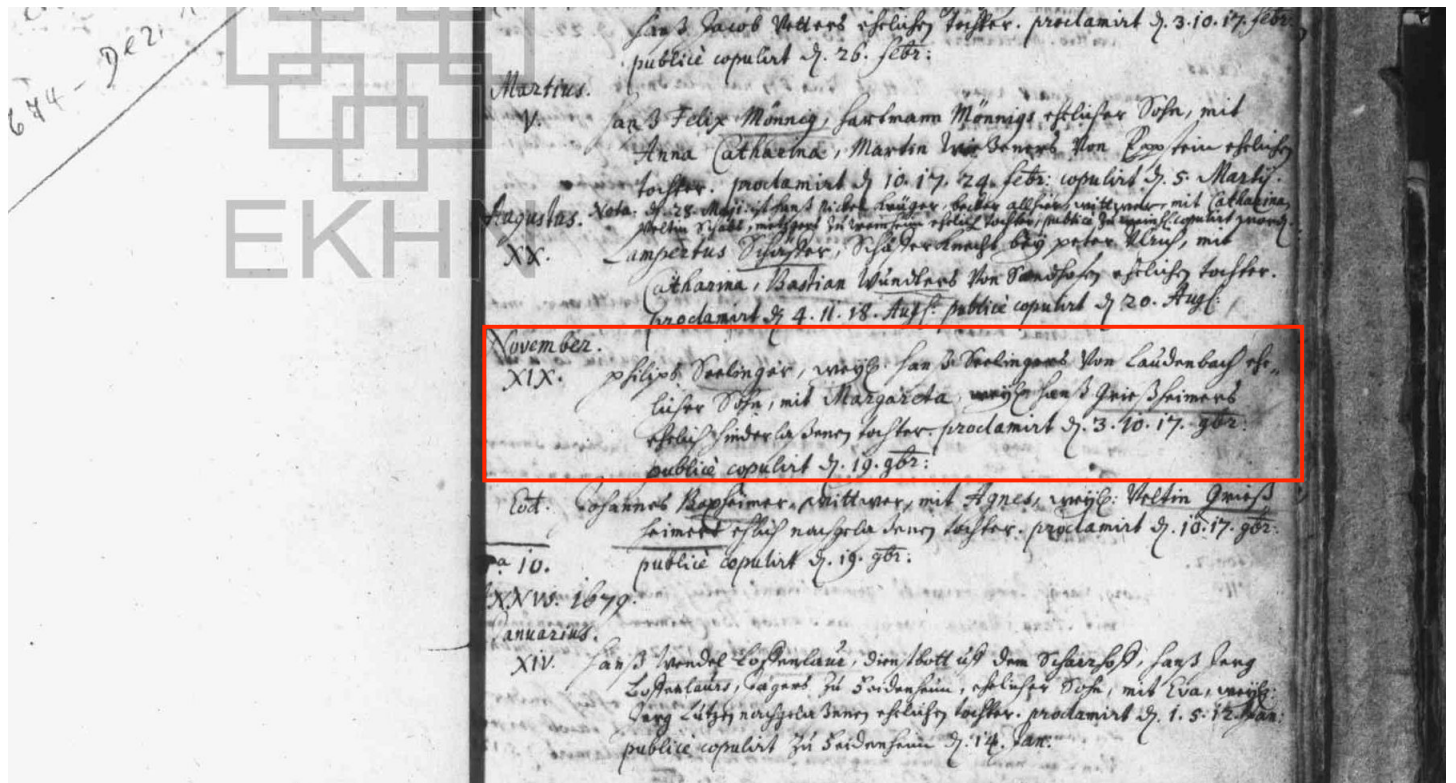 674 - Dez.
EKHN
Hanß Jacob Vetters ehelichen tochter. proclamirt d. 3. 10. 17. febr:
publicè copulirt d. 26. febr:
Martius.
V. Hanß Felix Mönnig, Hartmann Mönnigs ehlicher Sohn, mit
Anna Catharina, Martin von Eppstein ehelichen
tochter. proclamirt d. 10. 17. 24. febr: copulirt d. 5. Martij.
Augustus. Nota: d. 28. Maji ist Hanß Nickel Krüger, becker allhier, wittwer, mit Catharina
Veltin metzgers zu ehelich tochter, publicè zu copulirt word.
XX. Lampertus Schäffer, Schäfferknecht bey peter Ulrich, mit
Catharina, Bastian Wundters von Sandhofen ehelichen tochter.
proclamirt d. 4. 11. 18. Aug. publicè copulirt d. 20. Aug:
November.
XIX. philips Seelinger, weyl: Hanß Seelingers von Laudenbach ehe-
licher Sohn, mit Margareta, weyl: Hanß Grießheimers
ehelich hinderlaßenen tochter. proclamirt d. 3. 10. 17. 9br:
publicè copulirt d. 19. 9br:
Eod. Johannes Boxheimer, wittwer, mit Agnes, weyl: Veltin Grieß
heimers ehlich nachgelaßenen tochter. proclamirt d. 10. 17. 9br:
pa 10. publicè copulirt d. 19. 9br:
1679.
Januarius.
XIV. Hanß Wendel dienstbott uff dem Scharrhoff, Hanß Jerg
zu Seidenheim, ehelicher Sohn, mit Eva, weyl:
Jerg Lutzen nachgelaßenen ehelichen tochter. proclamirt d. 1. 5. 12. Jan:
publicè copulirt zu Seidenheim d. 14. Jan: